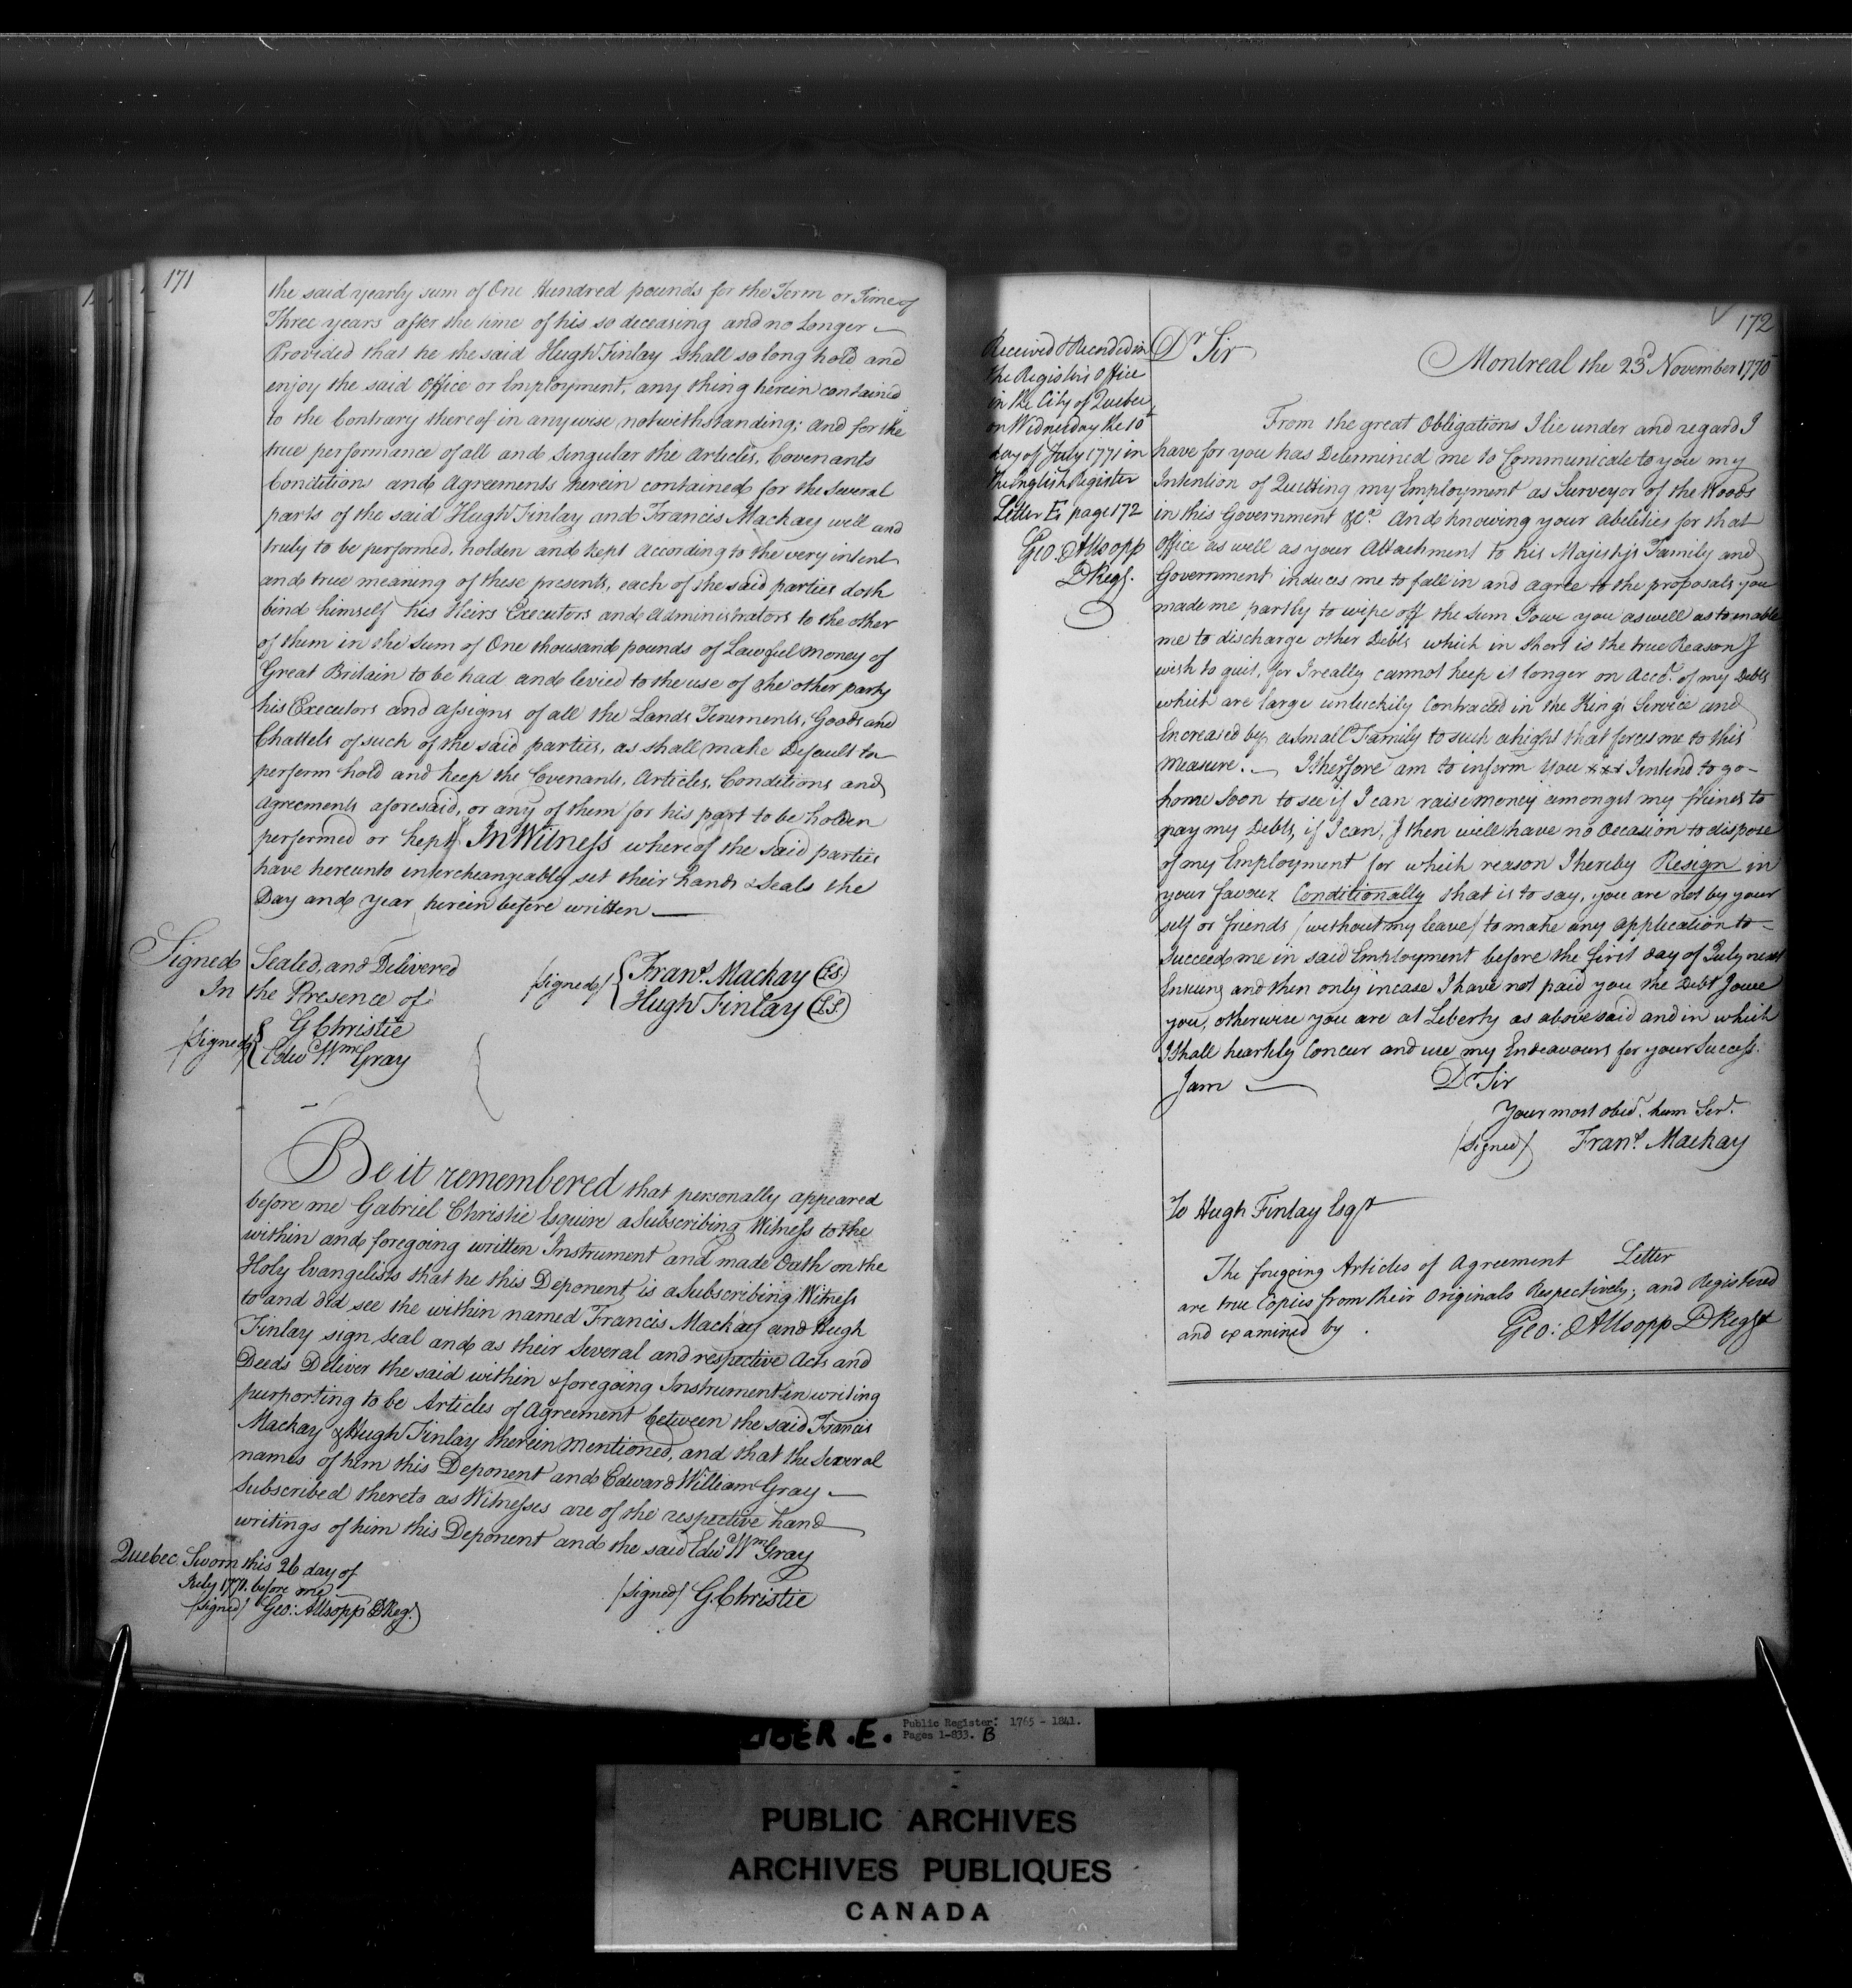 171
the said yearly sum of One Hundred pounds for the Term or Time of
Three years after the time of his so deceasing and no Longer —
Provided that he the said Hugh Finlay shall so long hold and
enjoy the said Office or Employment, any thing herein contained
to the Contrary thereof in anywise notwithstanding; And for the
true performance of all and Singular the Articles, Covenants
Conditions and Agreements herein contained for the several
parts of the said Hugh Finlay and Francis Mackay well and
truly to be performed, holden and kept According to the very intent
and true meaning of these presents, each of the said parties doth
bind himself his Heirs Executors and Administrators to the other
of them in the Sum of One thousand pounds of Lawful Money of
Great Britain to be had and levied to the use of the other party
his Executors and assigns of all the Lands Tenements, Goods and
Chattels of such of the said parties, as shall make Default to
perform hold and keep the Covenants, Articles, Conditions and
Agreements aforesaid, or any of them for his part to be holden
performed or kept In Witness whereof the said parties
have hereunto interchangeably set their hands & Seals the
Day and Year herein before written —
Signed Sealed, and Delivered
In the Presence of
/Signed/ G Christie
Edwd Wm Gray
/Signed/ Frans. Mackay (LS)
Hugh Finlay (LS)
Be it remembered that personally appeared
before me Gabriel Christie Esquire a Subscribing Witness to the
within and foregoing written Instrument and made Oath on the
Holy Evangelists that he this Deponent is a Subscribing Witness
to and did see the within named Francis Mackay and Hugh
Finlay sign seal and as their Several and respective Acts and
Deeds Deliver the said within & foregoing Instrument in writing
purporting to be Articles of Agreement between the said Francis
Mackay & Hugh Finlay therein mentioned, and that the Several
names of him this Deponent and Edward William Gray —
Subscribed thereto as Witnesses are of the respective hand
writings of him this Deponent and the said Edwd Wm Gray
Quebec Sworn this 26 day of
July 1771. before me
/signed/ Geo: Allsopp DReg.
/Signed/ G. Christie
172
Received & Recorded in
the Registers Office
in the City of Quebec
on Wednesday the 10
day of July 1771 in
the English Register
Letter E. page 172
Geo: Allsopp
DRegr.
Dr Sir
Montreal the 23d November 1770
From the great Obligations I lie under and regard I
have for you has Determined me to Communicate to you my
Intention of Quitting my Employment as Surveyor of the Woods
in this Government &ca. And knowing your Abelities for that
Office as well as your Attachment to his Majestys Family and
Government induces me to fall in and agree to the proposals you
made me partly to wipe off the Sum I owe you as well as to enable
me to discharge other Debts which in short is the true Reason I
wish to quit, for I really cannot keep it longer on Acct. of my Debts
which are large unluckily Contracted in the King's Service and
Encreased by a Small Family to such a hight that forces me to this
Measure. — I therefore am to inform you xxx I intend to go
home Soon to see if I can raise money amongst my friends to
pay my Debts, if I can, I then will have no Occasion to dispose
of my Employment for which reason I hereby Resign in
your favour Conditionally that is to say, you are not by your
self or friends /without my leave/ to make any Application to
Succeed me in said Employment before the first day of July next
Ensuing and then only in case I have not paid you the Debt I owe
you, otherwise you are at Leberty as abovesaid and in which
I Shall heartily Concur and use my Endeavours for your Success.
I am — Dr Sir
Your most obedt. hum Servt.
/Signed/ Frans. Mackay
To Hugh Finlay Esqr
The foregoing Articles of Agreement Letter
are true Copies from their Originals Respectively; and Registered
and examined by . Geo: Allsopp DRegr
LIBER .E.
Public Register: 1765 - 1841.
Pages 1-833. B
PUBLIC ARCHIVES
ARCHIVES PUBLIQUES
CANADA